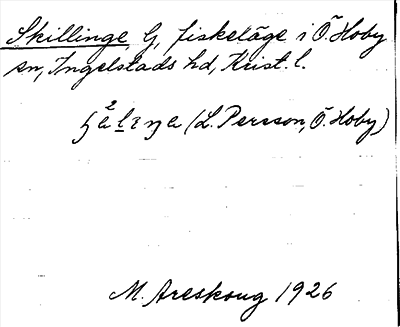 Skillinge G, fiskeläge i Ö. Hoby
sn, Ingelstads hd, Krist. l.
(L. Persson, Ö. Hoby)
M. Areskoug 1926